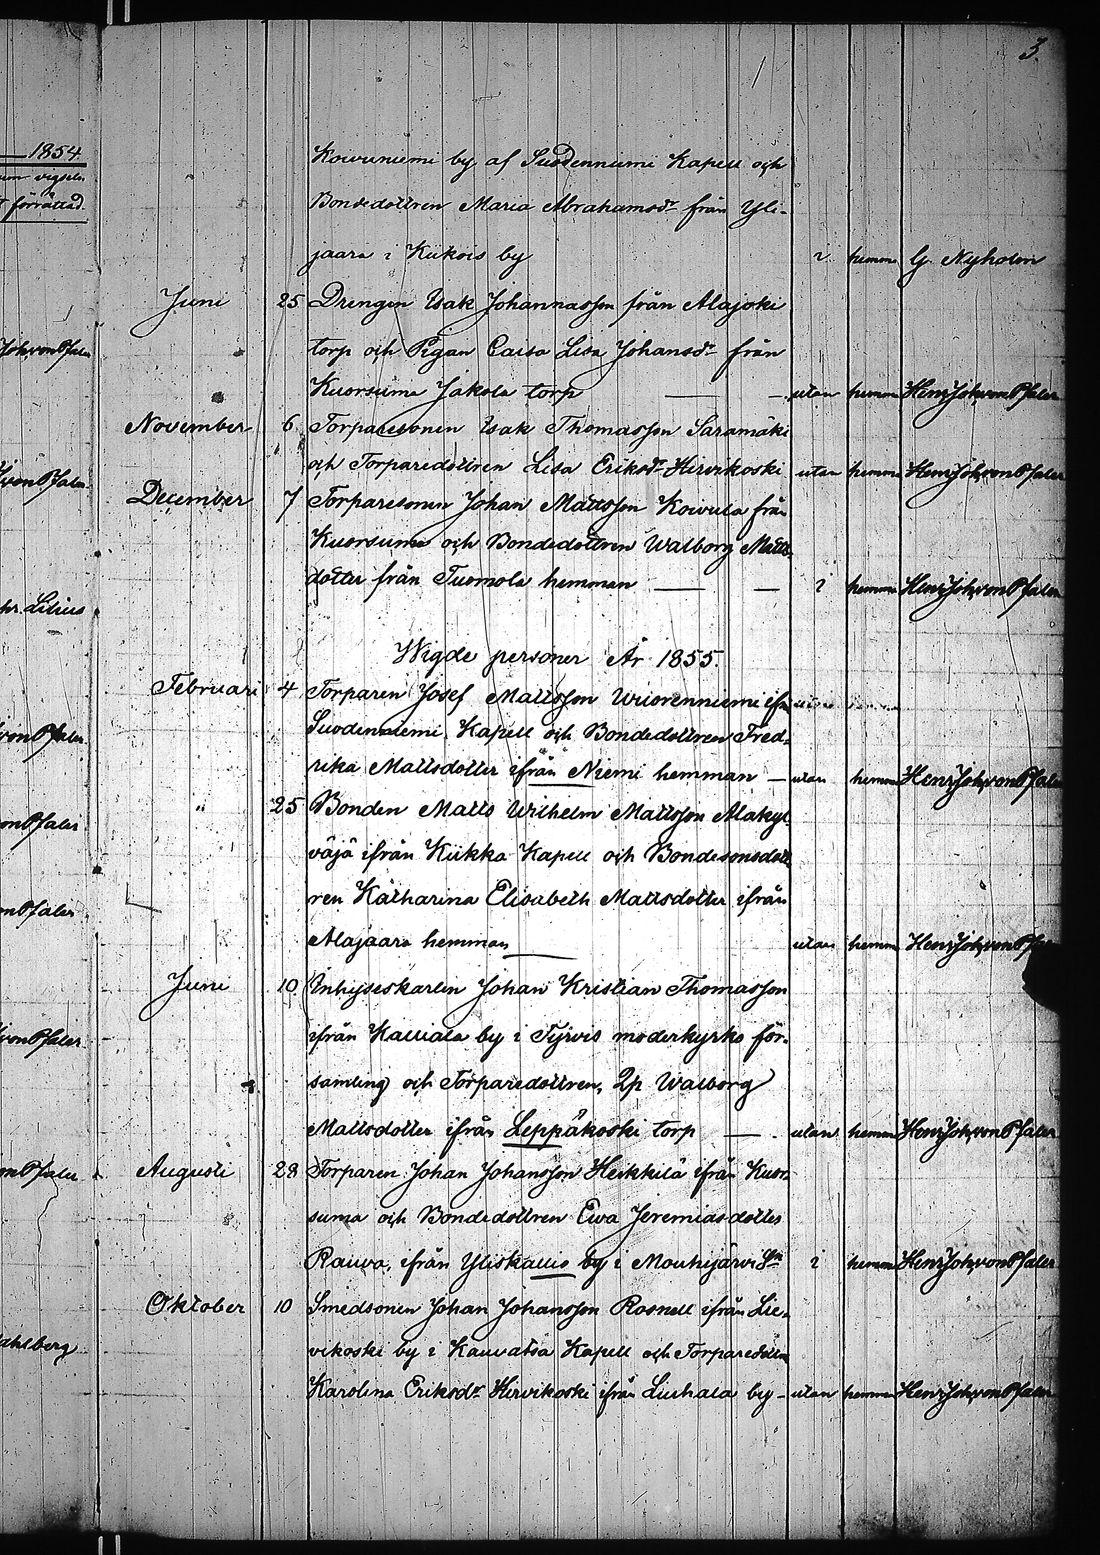 3.
1854
um vigseln
förrättad.
Koivuniemi by af Suodenniemi Kapell och
Bondedottren Maria Abrahamsdr från Yli-
jaara i Kiikois by i hemm G. Nyholm
Juni 25 Drengen Isak Johannasson från Alajoki
torp och Pigan Caisa Lisa Johansdr från
Kuorsuma Jakola torp — — utan hemm Henr Joh von Pfaler
November 6 Torparesonen Isak Thomasson Saramäki
och Torparedottren Lisa Eriksdr Hirvikoski utan hemm Henr Joh von Pfaler
December 7 Torparesonen Johan Mattsson Koivula från
Kuorsuma och Bondedottren Walborg Matts-
dotter från Tuomola hemman — — i hemm Henr Joh von Pfaler
Wigde personer År 1855.
Februari 4 Torparen Josef Mattsson Wuorenniemi ifrån
Suodenniemi Kapell och Bondedottren Fred-
rika Mattsdotter ifrån Niemi hemman — utan hemm Henr Joh von Pfaler
" 25 Bonden Matts Wilhelm Mattsson Alakyl-
väjä ifrån Kiikka Kapell och Bondesonsdott-
ren Katharina Elisabeth Mattsdotter ifrån
Alajaara hemman — utan hemm Henr Joh von Pfaler
Juni 10 Inhyseskarlen Johan Kristian Thomasson
ifrån Kalliala by i Tyrvis moderkyrko för-
samling och Torparedottren, Qp Walborg
Mattsdotter ifrån Leppäkoski torp — utan hemm Henr Joh von Pfaler
Augusti 28 Torparen Johan Johansson Heikkilä ifrån Kuor-
suma och Bondedottren Ewa Jeremiasdotter
Rauva, ifrån Yliskallio by i Mouhijärvi Sn i hemm Henr Joh von Pfaler
Oktober 10 Smedsonen Johan Johansson Rosnell ifrån Lie-
vikoski by i Kauvatsa Kapell och Torparedottren
Karolina Eriksdr Hirvikoski ifrån Liuhala by - utan hemm Henr Joh von Pfaler